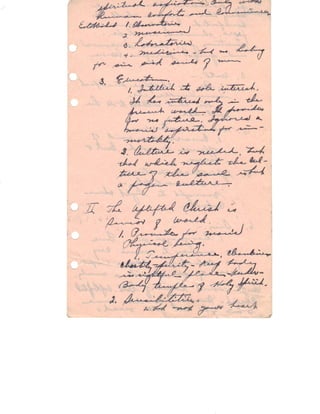 spiritual aspiration. Only with
human comforts and conveniences
Established 1. Observatories
2. museums
3. Laboratories
4. medicines - but no healing
for sin sick souls of men
3. Education.
1. Intellect its sole interest.
It has interest only in the
present world. It provides
for no future. Ignored a
man's aspiration for im-
mortality.
2. Culture is needed, but
that which neglects the cul-
ture of the soul is but
a pagan culture.
II. The uplifted Christ is
Savior of World
1. Provides for man's
Physical being.
Temperance, Cleanliness
chastity - purity - keep body
in rightful place - under
Body temples of Holy Spirit.
2. Sensibilities.
Let not your heart